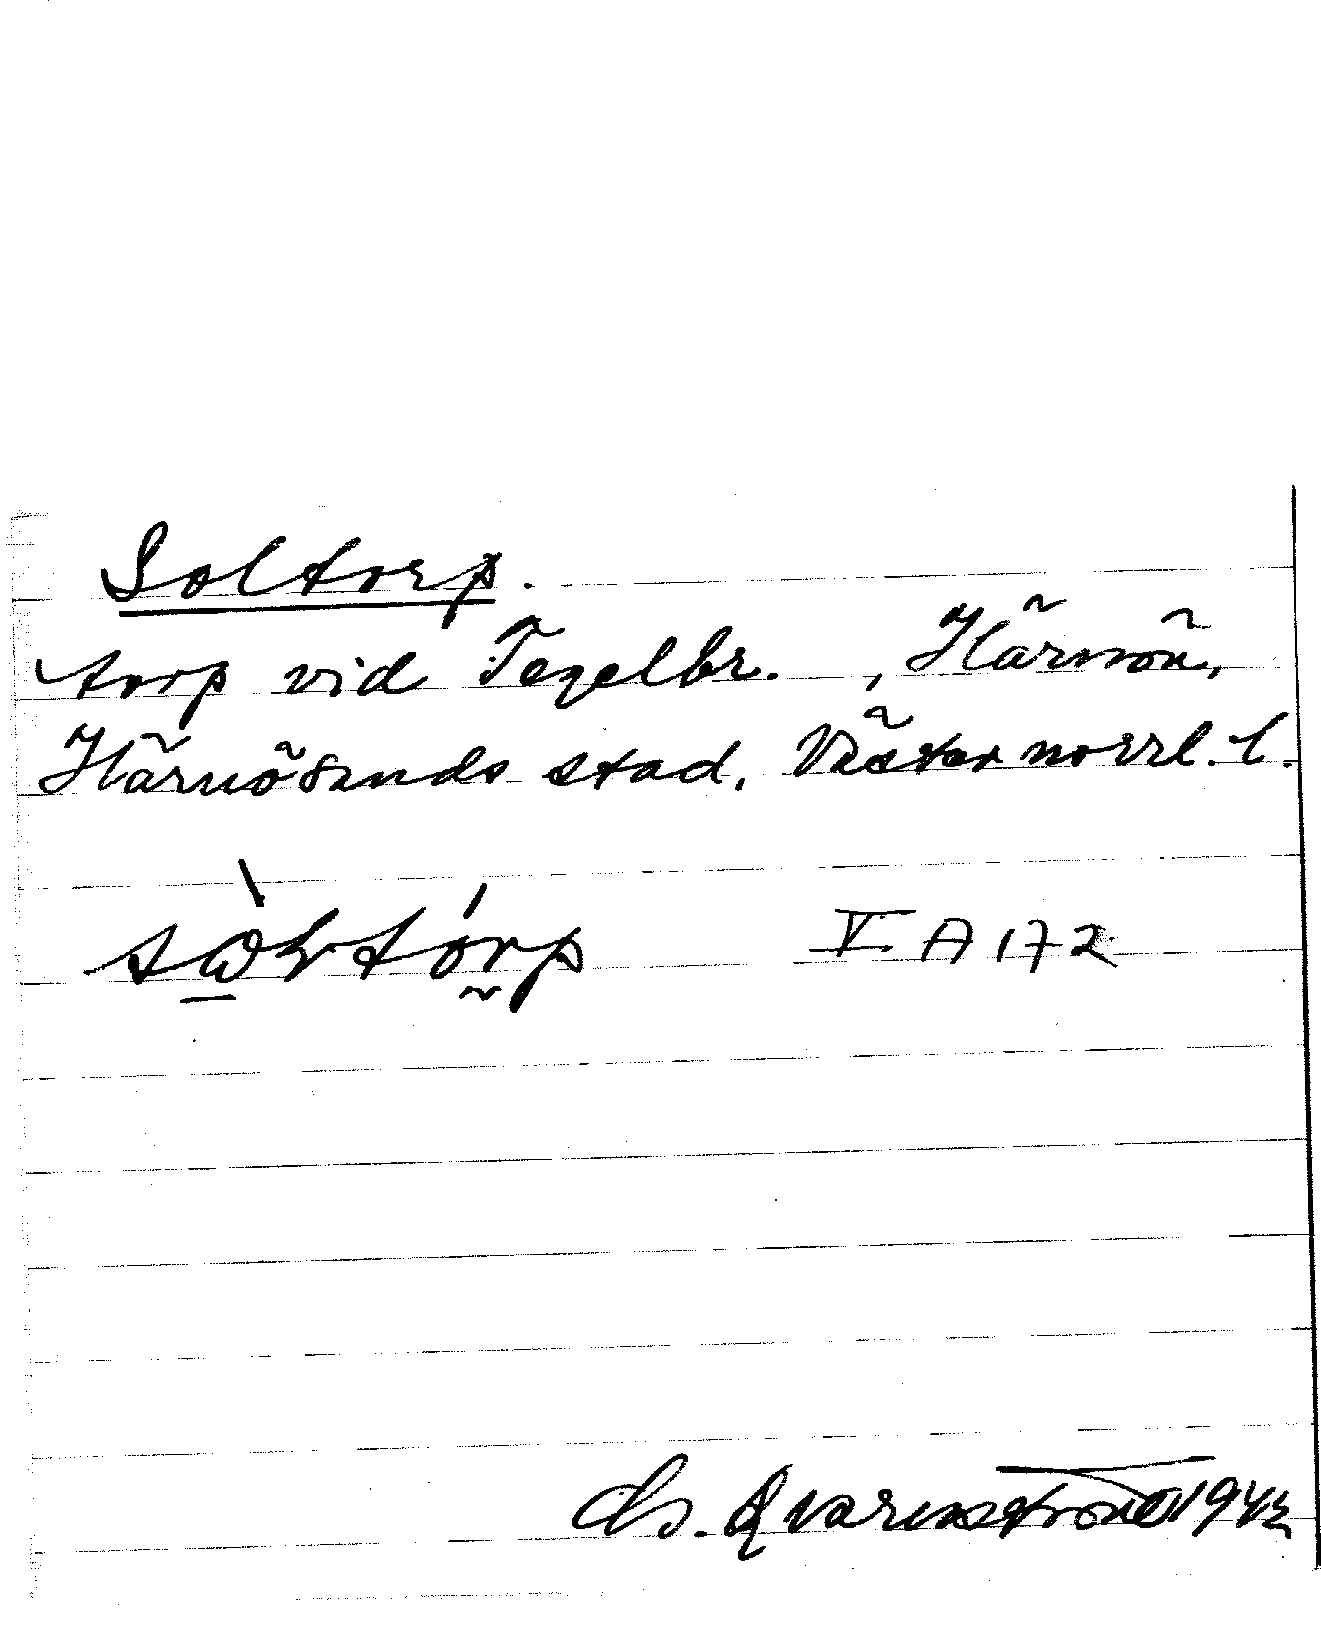 Soltorp.
torp vid Tegelbr. , Härnön,
Härnösands stad, Västernorrl. l.
V A 172
Qvarnström 1943